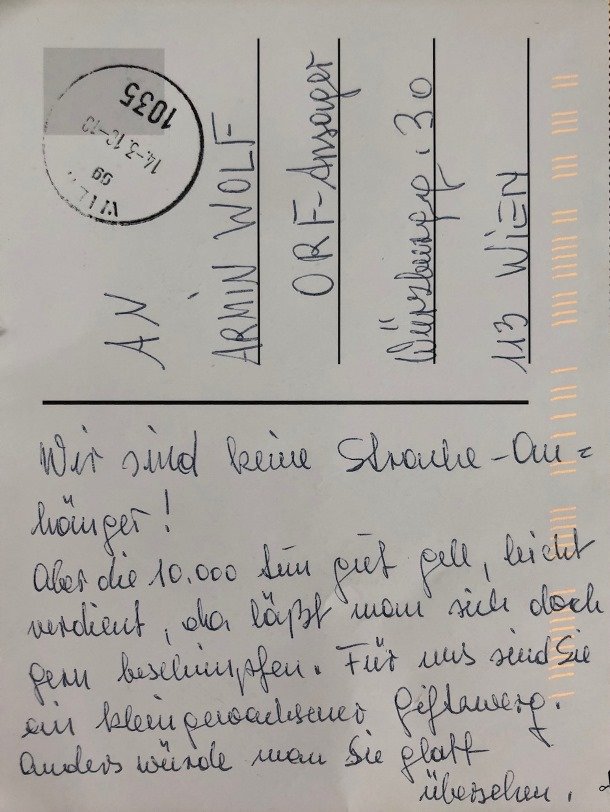 1035
AN
ARMIN WOLF
ORF-Ansager
30
113 WIEN
Wir sind keine Strache-An=
hänger!
Aber die 10.000 tun gut gell, leicht
verdient, da läßt man sich doch
gern beschimpfen. Für uns sind Sie
ein kleingewachsener Giftzwerg.
Anders würde man Sie glatt
übersehen.